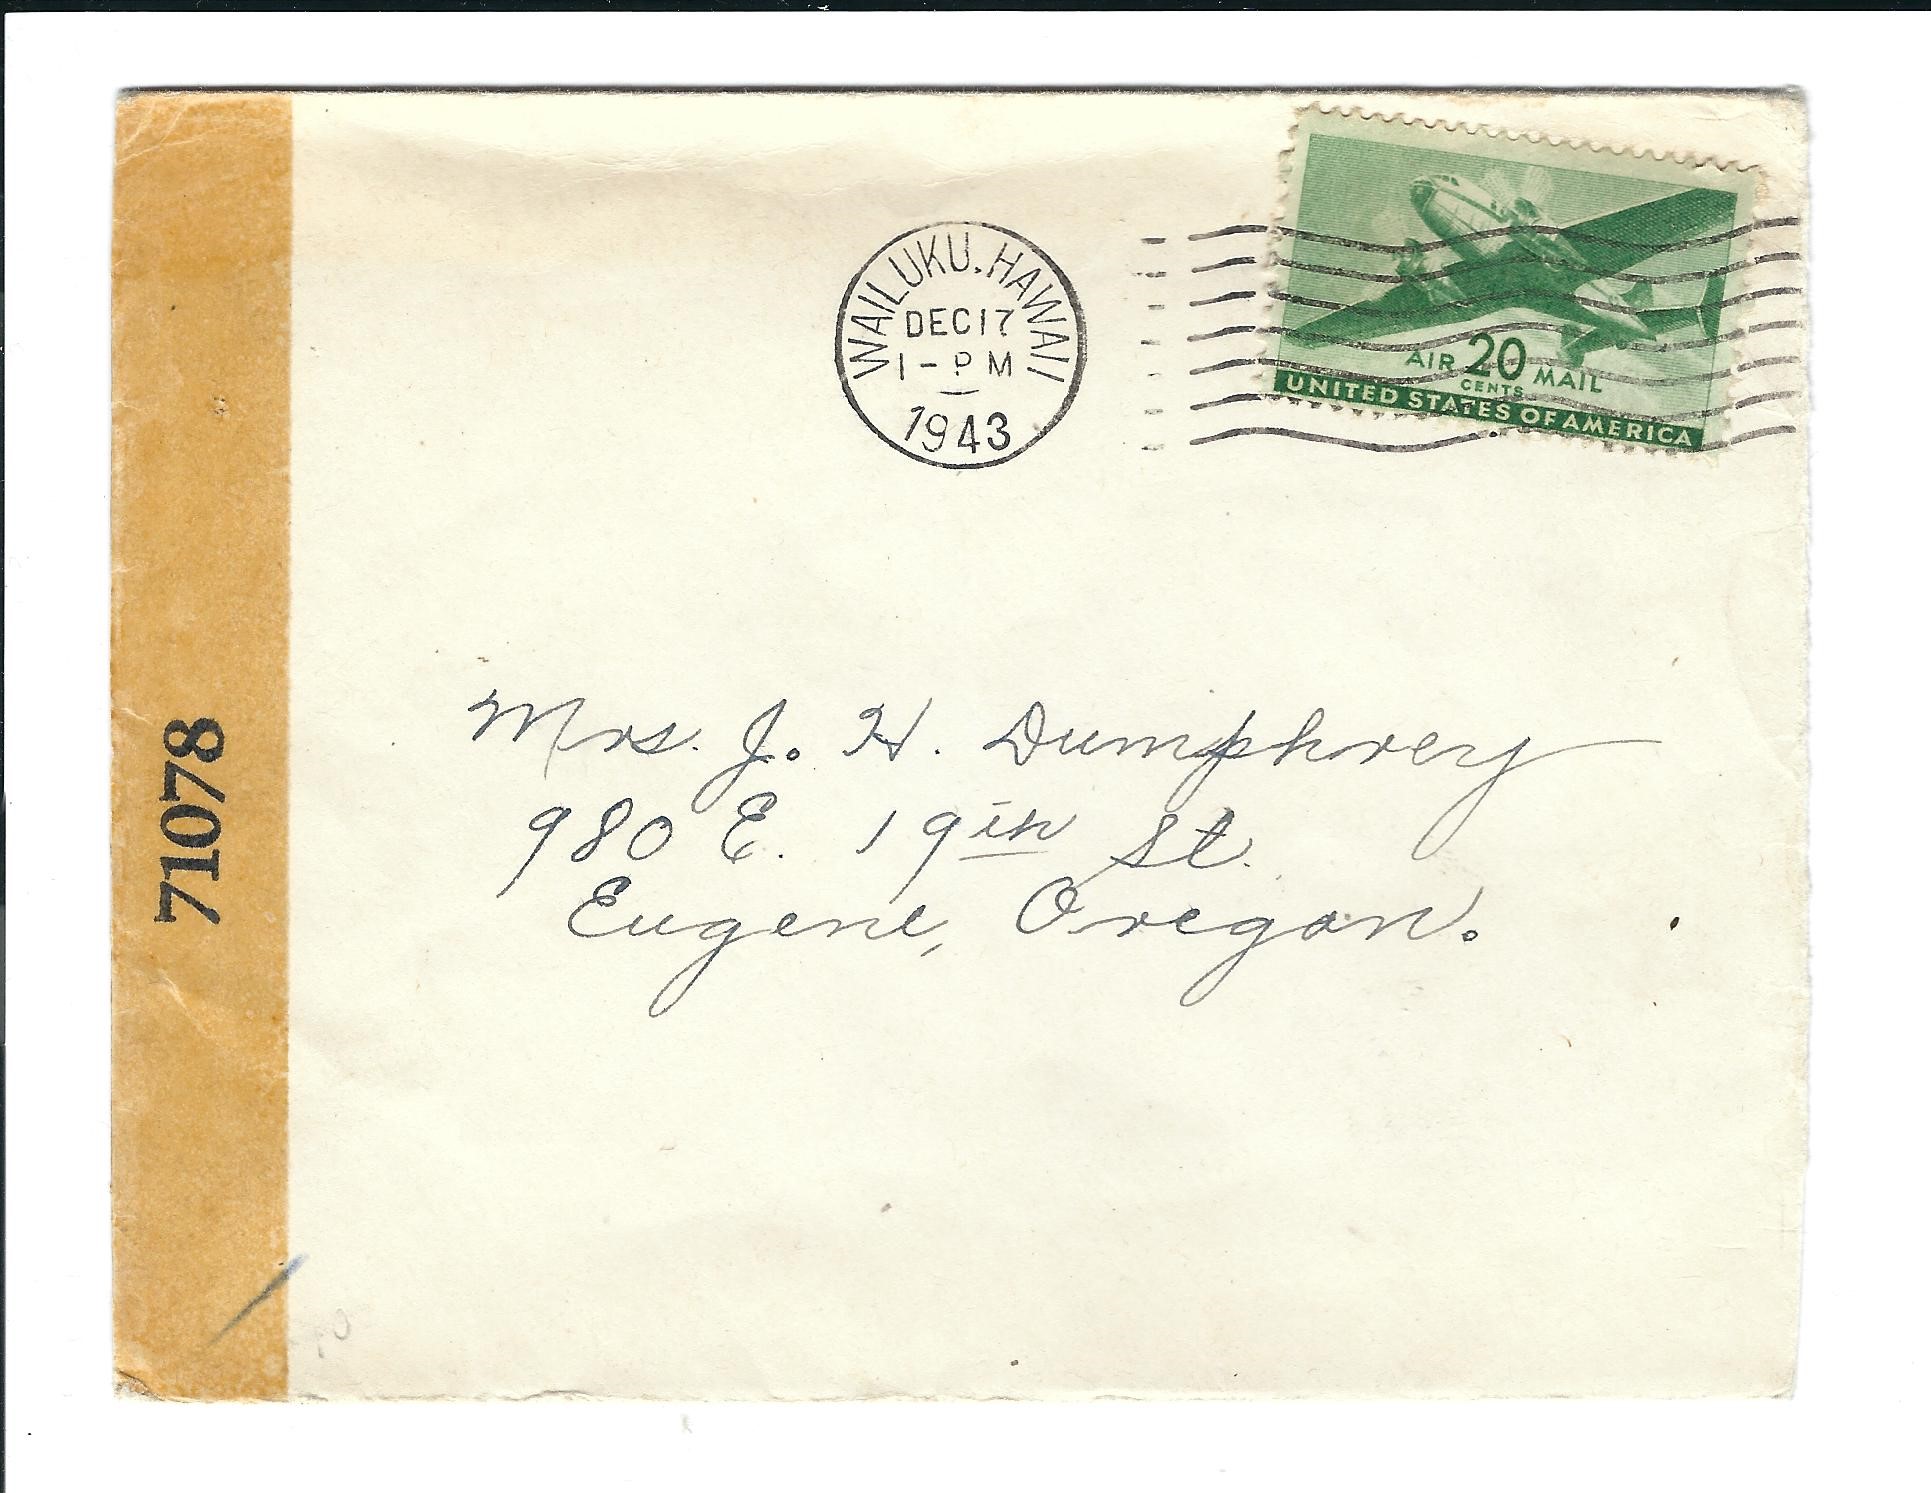 WAILUKU, HAWAII
DEC 17
1 - P M
1943
AIR 20 MAIL
CENTS
UNITED STATES OF AMERICA
71078
Mrs. J. H. Dumphrey
980 E. 19th St.
Eugene, Oregon.